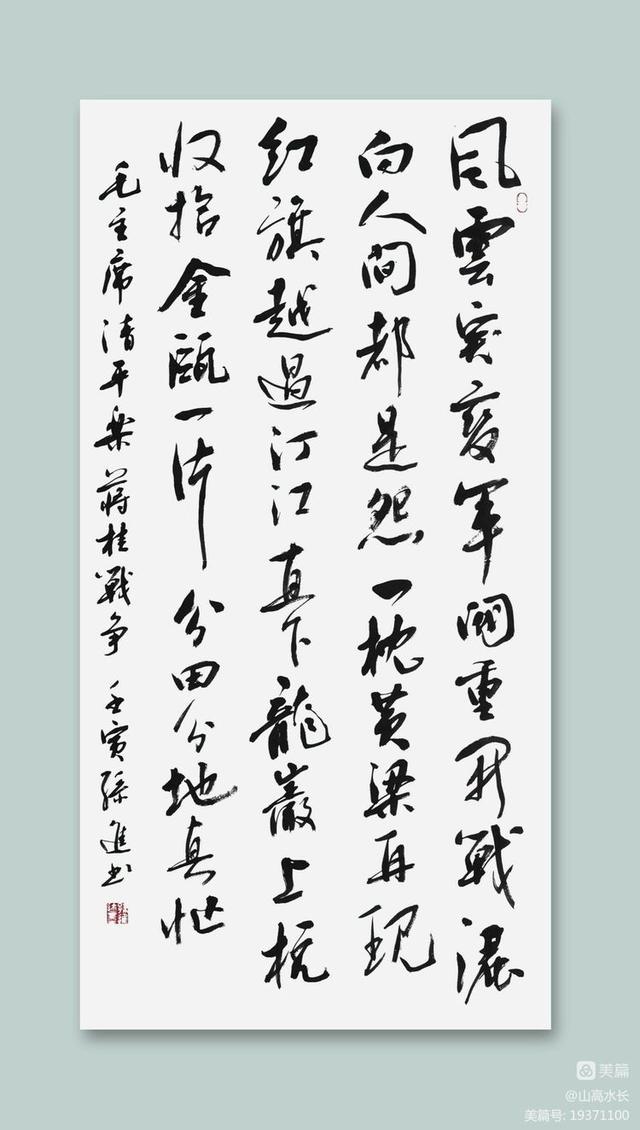 风雲突變軍閥重開戰灑
向人間都是怨一枕黄梁再現
紅旗越過汀江直下龍巖上杭
收拾金甌一片分田分地真忙
毛主席清平樂蔣桂戰争 壬寅孫進書
美篇
@山高水长
美篇号: 19371100